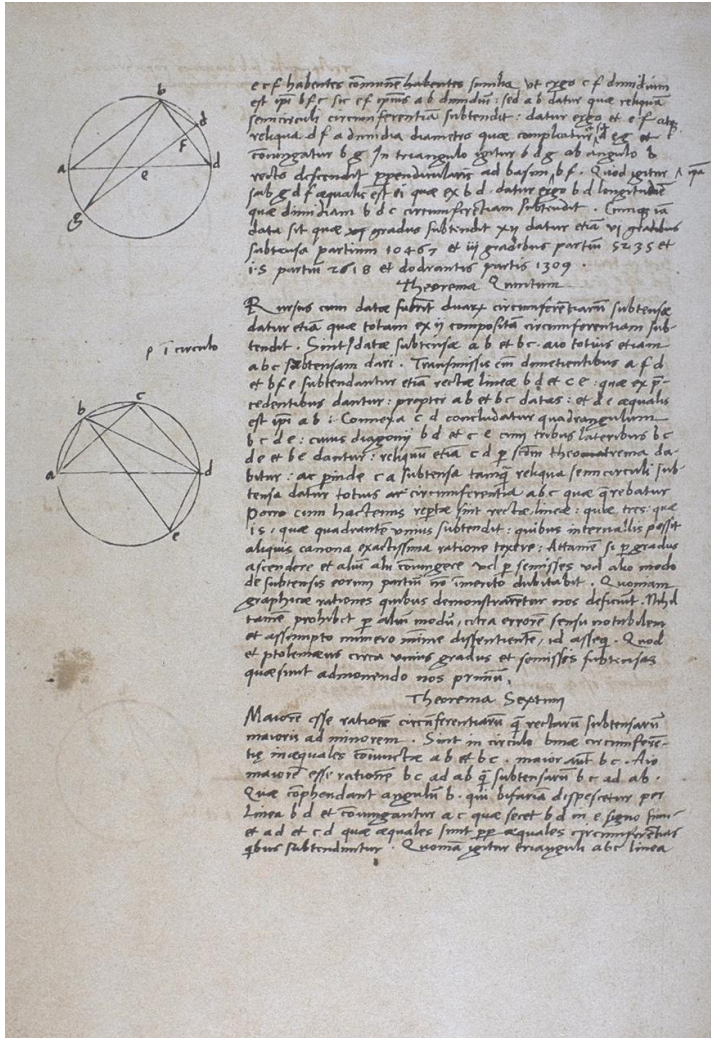 e c f habentes com̄unē habentes similia ut ergo c f dimidium
est ipi b f c sic e f ipius a b dimidiū : sed a b datur quæ reliquā
semicirculi circumferentia subtendit : datur ergo et e f atq̨
reliqua d f a dimidia diametro quæ compleatur d e g et
coniungatur b g In triangulo igitur b d g ab angulo b
recto descendit ppendicularis ad basim b f . Quod igitur
sub g d f æqualis est ei quæ ex b d . datur ergo b d longitudine
quæ dimidiam b d c circumferētiam subtendit . Cumq̨ iā
data sit quæ xij gradus subtendit xij datur etiā vi gradibus
subtensa partium 10467 et iij gradibus partiū 5235 et
i · s partiū 2618 et dodrantis partis 1309 .
Theorema Quintum
Rursus cum datæ fuerīt duarꝝ circumferētiarū subtensæ
datur etiā quæ totam ex ij compositā circumferentiam sub-
tendit . Sint datæ subtensæ a b et b c . aio totius etiam
a b c subtensam dari . Transmissis em̄ dimetientibus a f d
et b f e subtendantur etiā rectæ lineæ b d et c e : quæ ex p̄-
cedentibus dantur : propter a b et b c datas : et d e æqualis
est ipi a b : Connexa c d concludatur quadrangulum
b c d e : cuius diagonij b d et c e cum tribus lateribus b c
de et be dantur : reliquū etiā c d p scdm̄ theorema da-
bitur : ac pinde c a subtensa tamq̄ reliqua semicirculi sub-
tensa datur totius circumferentia a b c quæ q̨rebatur
Porro cum hactenus reptæ sint rectæ lineæ : quæ tres : quæ
i s : quæ quadrantē vnius subtendit : quibus intervallis possit
aliquis canona exactissima ratione texere : Attamen si p gradus
ascendere et aliū alij coniungere vel p semisses vel alio modo
de subtensis eorum partiū nō imerito dubitabit . Quoniam
graphicæ rationes quibus demonstrarētur nos deficiūt . Nihil
tamē prohibet p aliū modū , citra errorē sensu notabilem
et assumpto numero minime dissentientē , id asseq̨ . Quod
et ptolemæus circa vnius gradus et semissis subtensas
quæsiuit admonendo nos primū .
Theorema Sextum
Maiorē esse rationē circūferentiarū q̄ rectarū subtensarū
maioris ad minorem . Sint in circulo binæ circumferē-
tię inæquales coniunctæ a b et b c . maior aūt b c . Aio
maiorē esse rationē b c ad a b q̄ subtensarū b c ad a b .
Quæ cōphendant angulū b . qui bifariā dispescetur per
lineā b d et coniungantur a c quæ secet b d in e signo simi-
et a d et c d quæ æquales sunt pp æquales circumferentias
q̨bus subtenduntur . Quoniā igitur trianguli a b c linea
b
d
f
a
e
d
g
p ī circulo
c
b
a
d
e